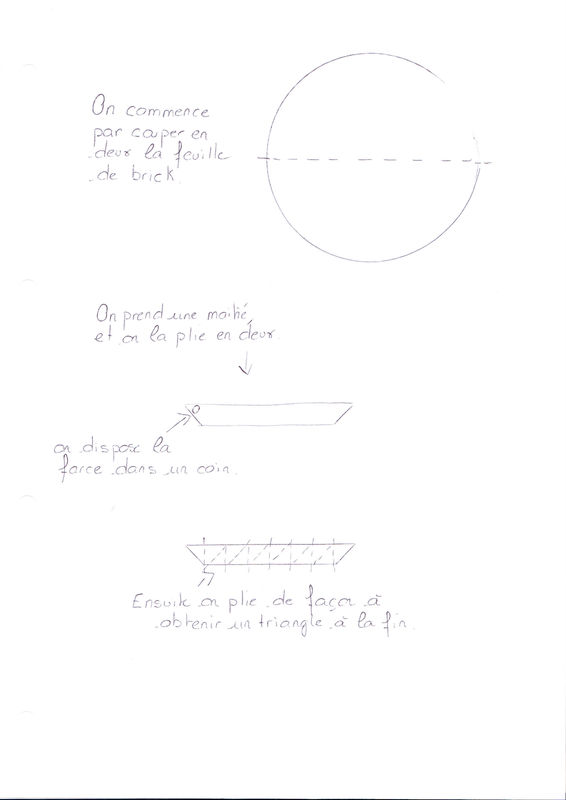 On commence
par couper en
deux la feuille
de brick.
On prend une moitié,
et on la plie en deux.
on dispose la
farce dans un coin.
Ensuite on plie de façon à
obtenir un triangle à la fin.